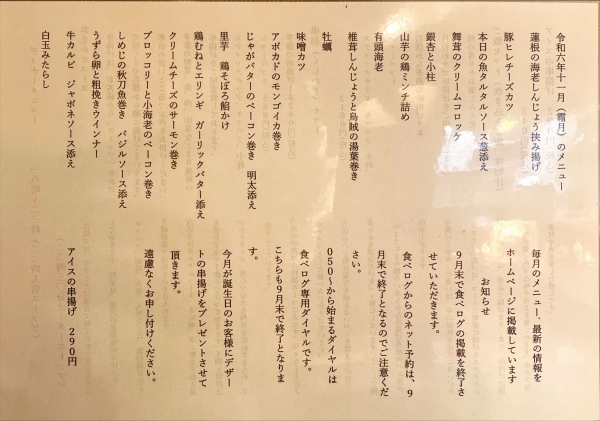 令和六年十一月（霜月）のメニュー
蓮根の海老しんじょう挟み揚げ
豚ヒレチーズカツ
本日の魚タルタルソース葱添え
舞茸のクリームコロッケ
銀杏と小柱
山芋の鶏ミンチ詰め
有頭海老
椎茸しんじょうと烏賊の湯葉巻き
牡蠣
味噌カツ
アボカドのモンゴイカ巻き
じゃがバターのベーコン巻き　明太添え
里芋　鶏そぼろ餡かけ
鶏むねとエリンギ　ガーリックバター添え
クリームチーズのサーモン巻き
ブロッコリーと小海老のベーコン巻き
しめじの秋刀魚巻き　バジルソース添え
うずら卵と粗挽きウインナー
牛カルビ　ジャポネソース添え
白玉みたらし
毎月のメニュー、最新の情報を
ホームページに掲載しています
お知らせ
９月末で食べログの掲載を終了さ
せていただきます。
食べログからのネット予約は、９
月末で終了となるのでご注意くだ
さい。
０５０～から始まるダイヤルは
食べログ専用ダイヤルです。
こちらも９月末で終了となりま
す。
今月が誕生日のお客様にデザー
トの串揚げをプレゼントさせて
頂きます。
遠慮なくお申し付けください。
アイスの串揚げ　２９０円